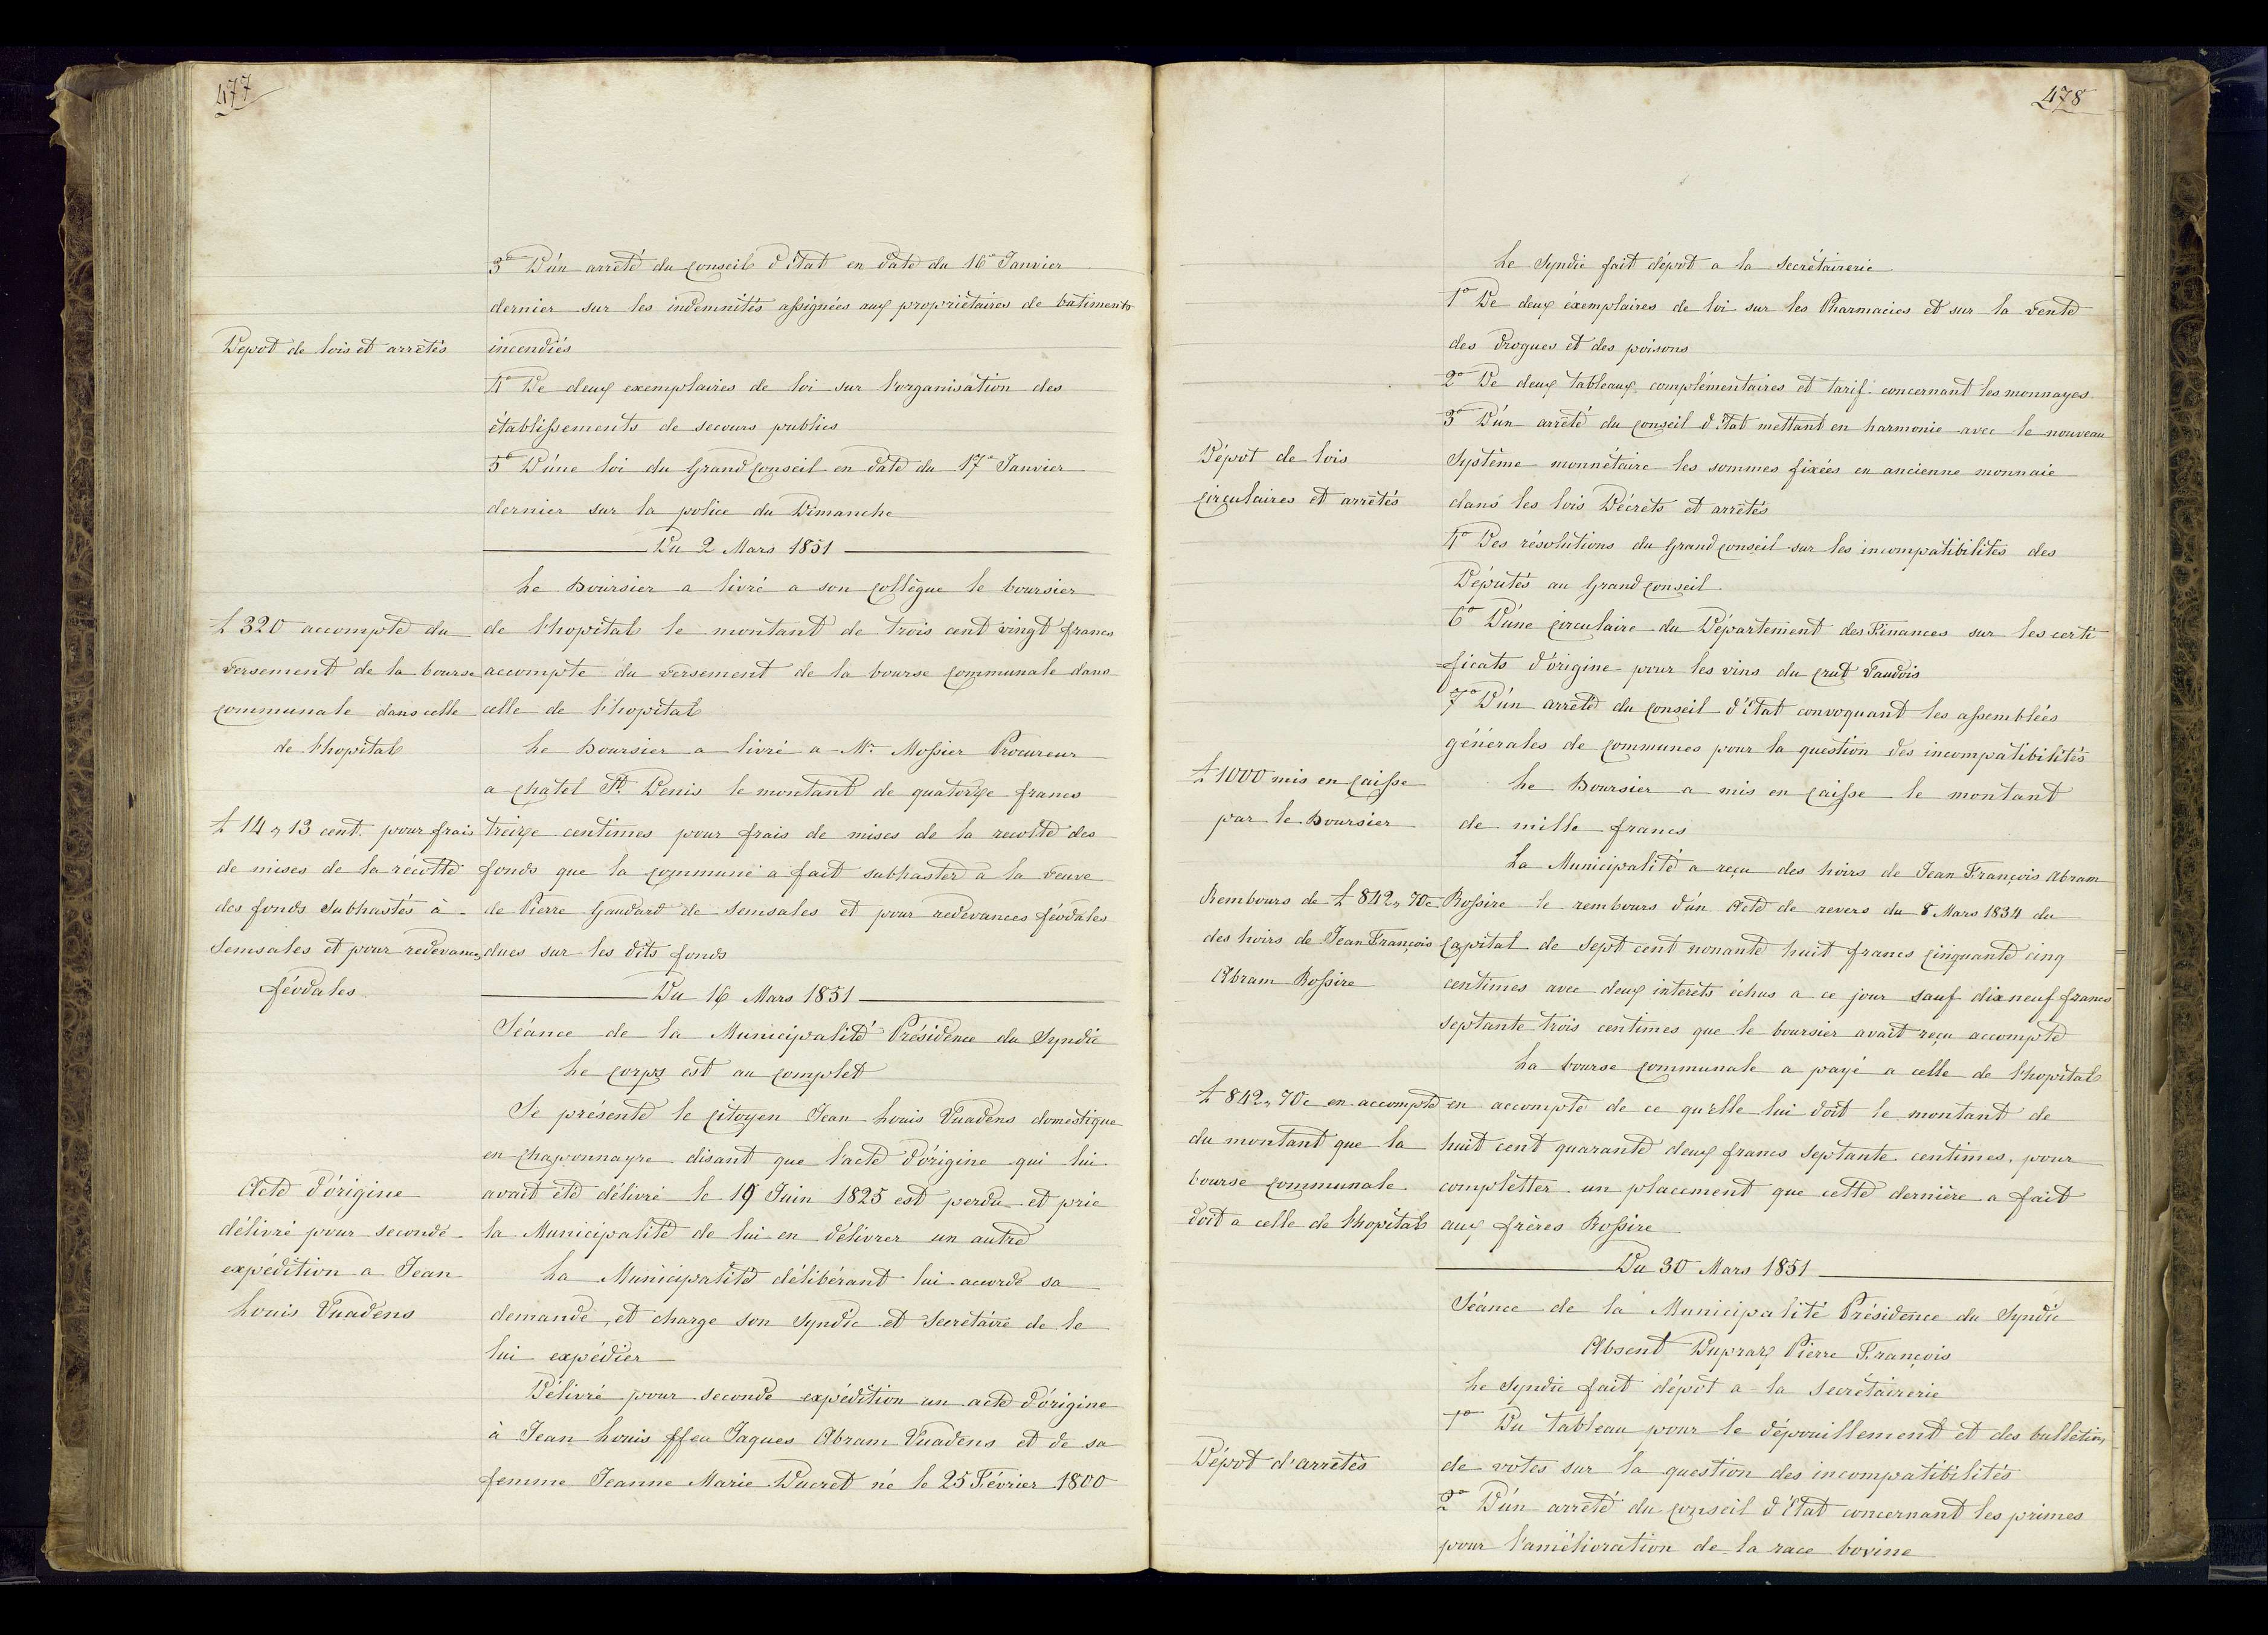 477
3o D'un arrêté du Conseil d'Etat en date du 16e Janvier
dernier sur les indemnités assignées aux propriétaires de batiments
Depot de lois et arrêtés
incendiés
4o De deux exemplaires de loi sur l'organisation des
établissements de secours publics
5o D'une loi du Grand Conseil en date du 17e Janvier
dernier sur la police du Dimanche
Du 2 Mars 1851
Le Boursier a livré a son Collègue le boursier
£ 320 accompte du
versement de la bourse
communale dans celle
de l'hopital
de l'hopital le montant de trois cent vingt francs
accompte du versement de la bourse Communale dans
celle de l'hopital
Le Boursier a livré a Mr. Mossier Procureur
a Chatel St. Denis le montant de quatorze francs
£ 14 „ 13 cent. pour frais
de mises de la récolte
des fonds subhastés à
Semsales et pour redevances
féodales
treize centimes pour frais de mises de la recolte des
fonds que la Commune a fait subhaster a la veuve
de Pierre Gaudard de Semsales et pour redevances féodales
dues sur les dits fonds
Du 16 Mars 1851
Séance de la Municipalité Présidence du Syndic
Le Corps est au Complet
Se présente le Citoyen Jean Louis Vuadens domestique
en Chaponnayre disant que l'acte d'origine qui lui
Acte d'origine
délivré pour seconde
expédition a Jean
Louis Vuadens
avait été délivré le 19 Juin 1825 est perdu et prie
la Municipalité de lui en délivrer un autre
La Municipalité délibérant lui accorde sa
demande, et charge son Syndic et Secrétaire de le
lui expédier
Délivré pour seconde expédition un acte d'origine
à Jean Louis ffeu Jaques Abram Vuadens et de sa
femme Jeanne Marie Ducret né le 25 Février 1800
478
Le Syndic fait dépot a la Secrétairerie
1o De deux éxemplaires de loi sur les Pharmacies et sur la vente
des drogues et des poisons
2o De deux tableaux complémentaires et tarif concernant les monnayes
3o D'un arrêté du Conseil d'Etat mettant en harmonie avec le nouveau
Dépot de lois
Circulaires et arrêtés
Système monnétaire les sommes fixées en ancienne monnaie
dans les lois Décrets et arrêtés
4o Des résolutions du Grand Conseil sur les incompatibilités des
Députés au Grand Conseil
6o D'une Circulaire du Département des Finances sur les certi
ficats d'origine pour les vins du Crut Vaudois
7o D'un arrêté du Conseil d'Etat convoquant les assemblées
générales de Communes pour la question des incompatibilités
£ 1000 mis en Caisse
par le Boursier
Le Boursier a mis en Caisse le montant
de mille francs
La Municipalité a reçu des hoirs de Jean François Abram
Rembours de £ 842 „ 70c
des hoirs de Jean François
Abram Rossire
Rossire le rembours d'un Acte de revers du 8 Mars 1834 du
Capital de Sept cent nonante huit francs Cinquante Cinq
centimes avec deux interets échus a ce jour sauf dix neuf francs
septante trois centimes que le boursier avait reçu accompte
La bourse Communale a payé a celle de l'hopital
£ 842 „ 70c en accompte
du montant que la
bourse Communale
doit a celle de l'hopital
en accompte de ce qu'elle lui doit le montant de
huit cent quarante deux francs Septante centimes, pour
completter un placement que cette dernière a fait
aux frères Rossire
Du 30 Mars 1851
Séance de la Municipalité Présidence du Syndic
Absent Dupraz Pierre François
Le Syndic fait dépot a la Secrétairerie
1o Du tableau pour le dépouillement et des bulletins
Dépot d'arrêtés
de votes sur la question des incompatibilités
2o D'un arrêté du Conseil d'Etat concernant les primes
pour l'amélioration de la race bovine